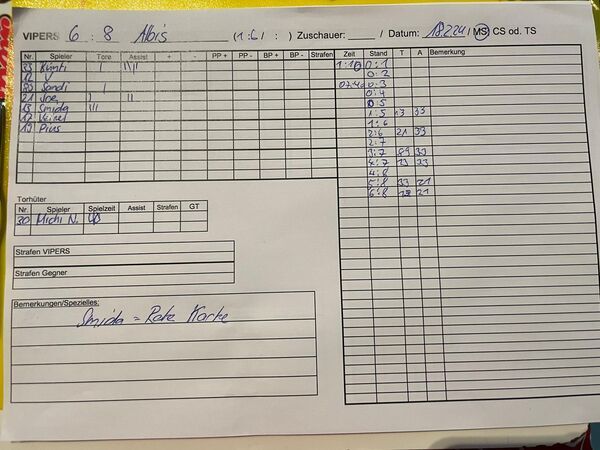 VIPERS 6 : 8 Albis (1 : 6 / : ) Zuschauer: ____ / Datum: 18.2.24 / MS CS od. TS
Nr. Spieler Tore Assist + - PP + PP - BP + BP - Strafen
33
12
80 Sandi I
21
13 Smida III
17
19 Pius
Zeit Stand T A Bemerkung
0:1
0:2
0:3
0:4
0:5
1:5 13 33
1:6
2:6 21 33
2:7
3:7 89 33
4:7 13 33
4:8
5:8 33 21
6:8 21
Torhüter
Nr. Spieler Spielzeit Assist Strafen GT
30 Michi N.
Strafen VIPERS
Strafen Gegner
Bemerkungen/Spezielles:
Smida = Rote Karte